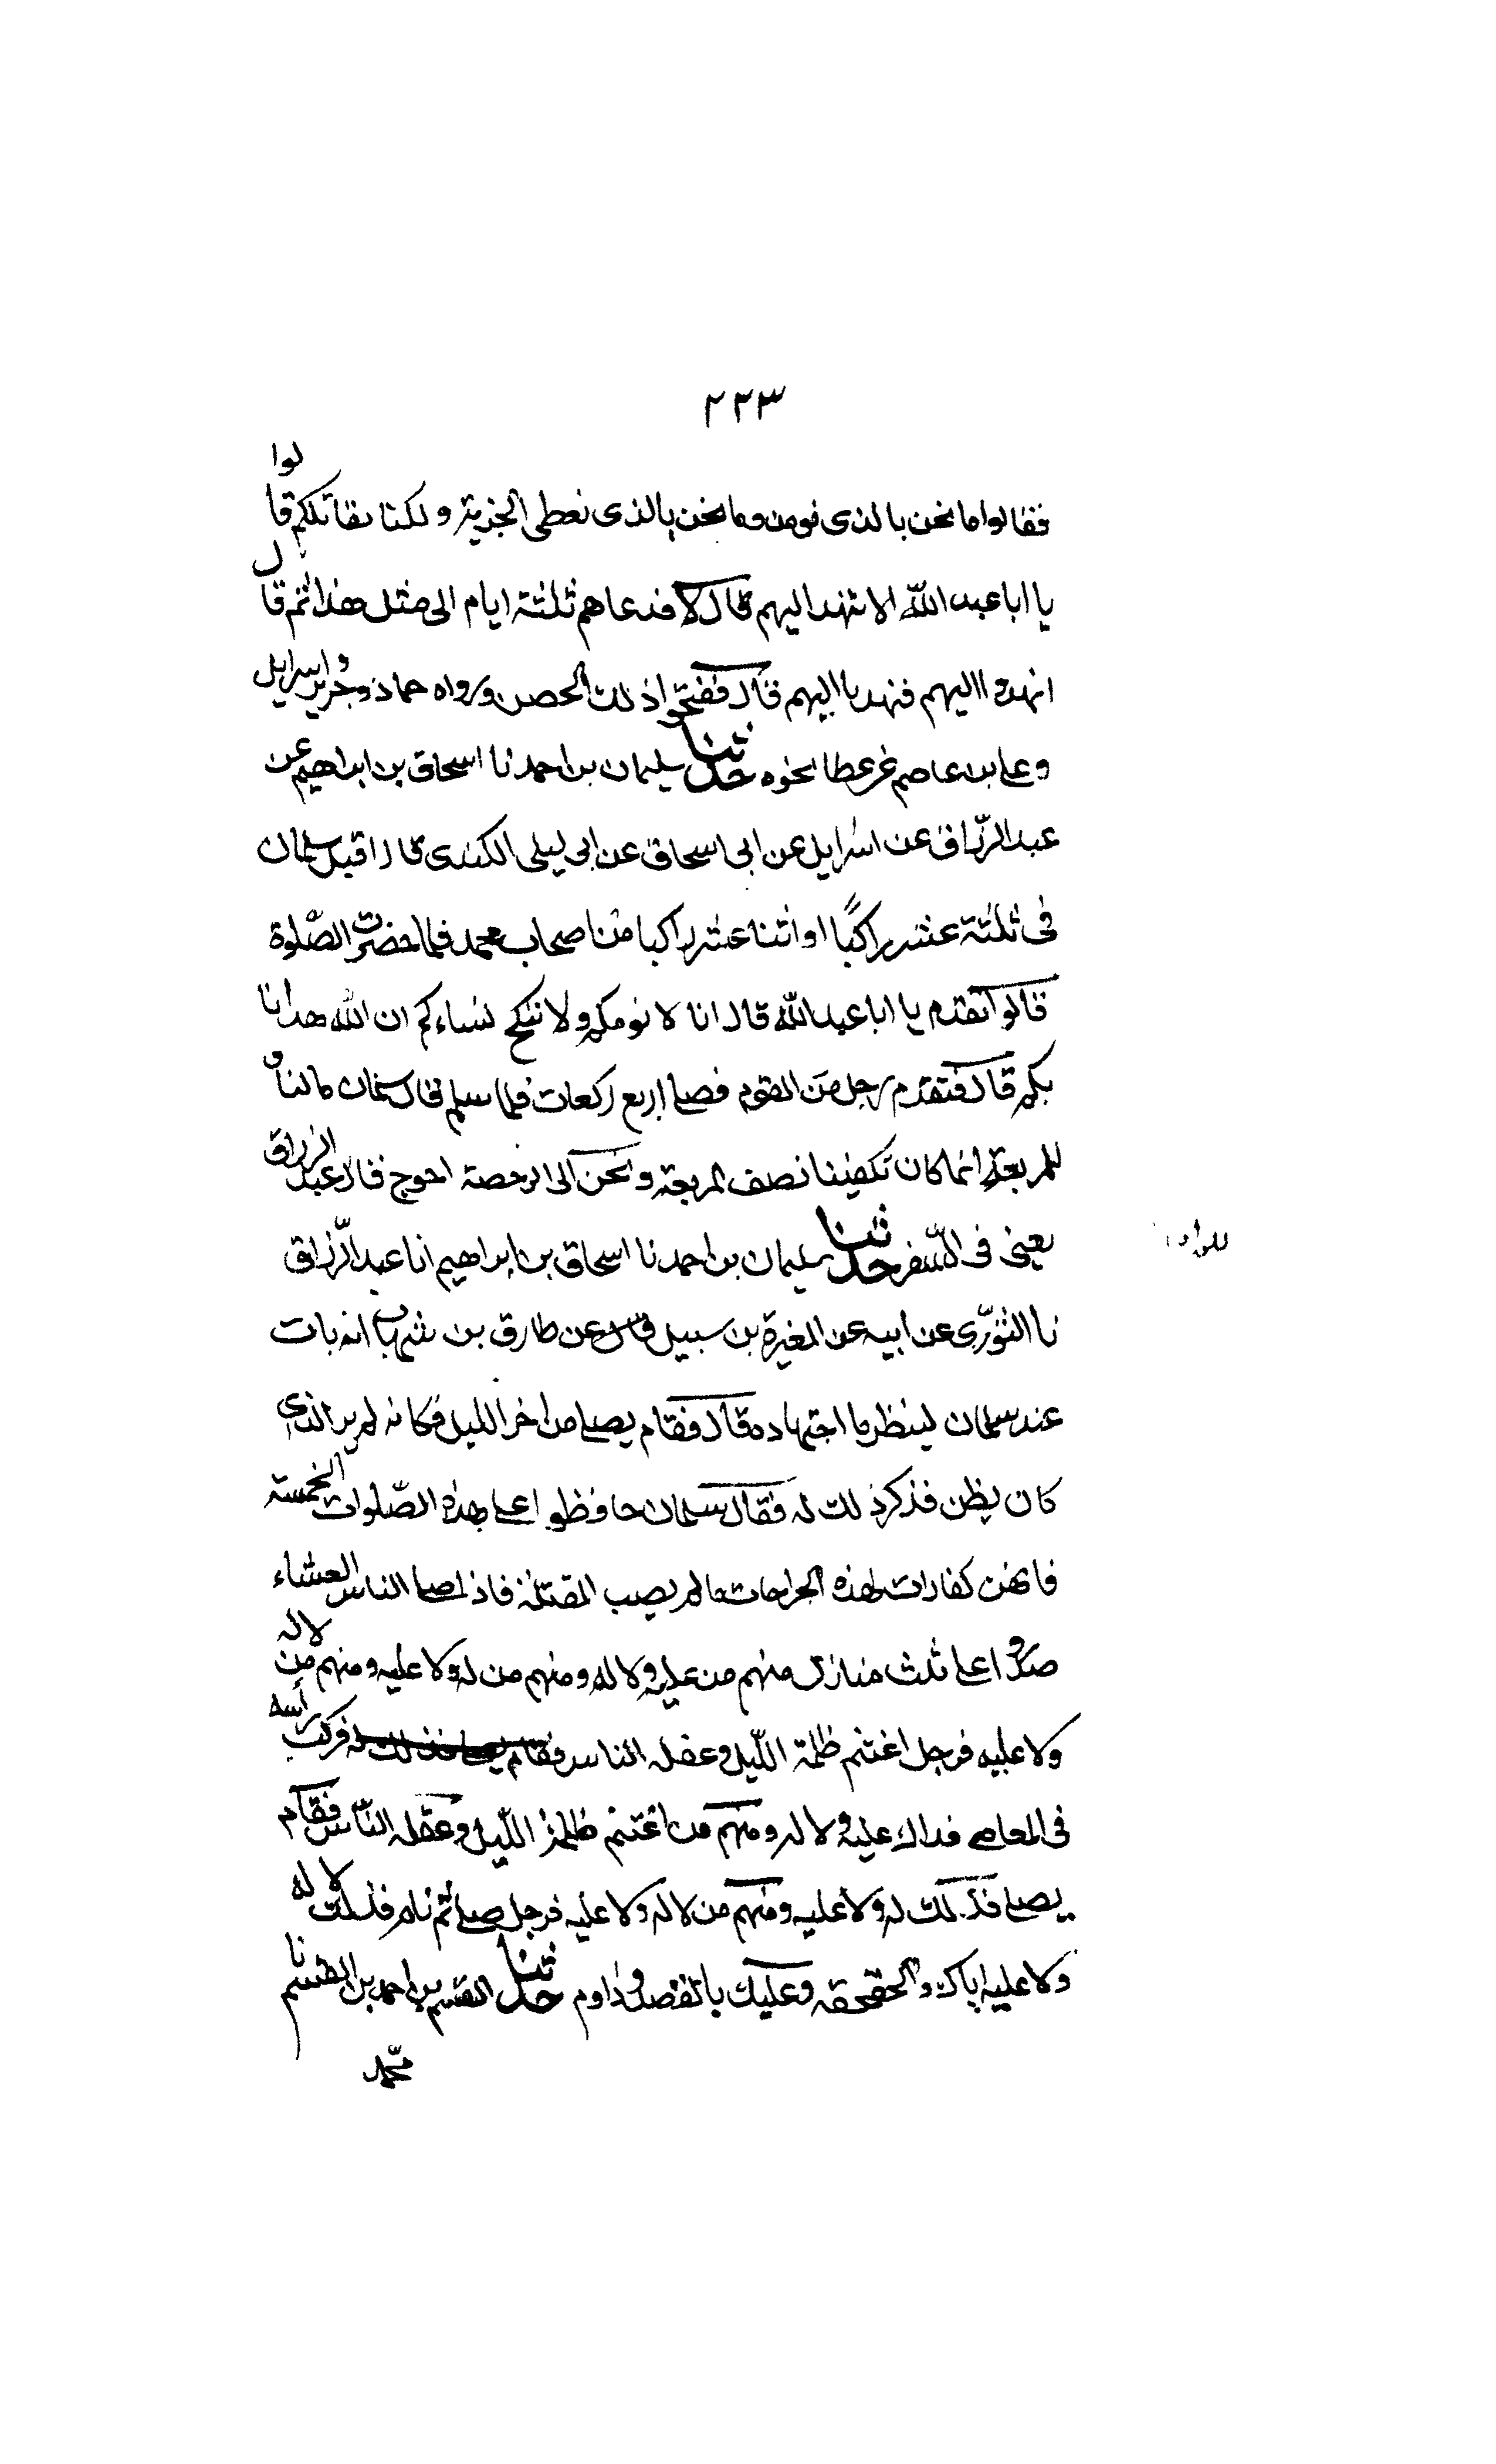 ٢٢٣
فقالوا ما نحن بالذى نومن وما نحن بالذى نعطى الجزية ولكنا نقاتلكم قالوا
يا ابا عبد الله الا ننهد اليهم قال لا فدعاهم ثلثة ايام الى مثل هذا ثم قال
انهدوا اليهم فنهدنا اليهم قال ففتحوا ذلك الحصن ورواه حماد وجرير واسرايل
وعلى بن عاصم عن عطا نحوه حدثنا سليمان بن احمد نا اسحاق بن ابراهيم عن
عبد الرزاق عن اسرايل عن ابى اسحاق عن ابى ليلى الكندى قال اقبل سلمان
فى ثلثة عشر راكبًا او اثنا عشر راكبا من اصحاب محمد فلما حضرت الصّلوة
قالوا تقدم يا ابا عبد الله قال انا لا نومكم ولا ننكح نساءكم ان الله هدانا
بكم قال فتقدم رجل من القوم فصلى اربع ركعات فلما سلم قال سلمان ما لنا و
للمربعة انما كان تكفينا نصف المربعة ونحن الى الرخصة احوج قال عبد الرزاق
يعنى فى السّفر حدثنا سليمان بن احمد نا اسحاق بن ابراهيم انا عبد الرّزاق
نا الثورّى عن ابيه عن المغيرة بن سبيل عن طارق بن شهاب انه بات
عند سلمان لينظر ما اجتهاده قال فقام يصلى من اخر الليل فكانه لم ير الذى
كان يظن فذكر ذلك له فقال سلمان حافظوا على هذه الصّلوات الخمسة
فانهن كفارات لهذه الجراحات ما لم يصب المقتلة فاذا صلى الناس العشاء
صدروا على ثلث منازل منهم من عليه ولا له ومنهم من له ولا عليه ومنهم من لا له
ولا عليه فرجل اغتنم ظلمة اللّيل وغفلة الناس فركب راسه
فى المعاصى فذاك عليه ولا له ومنهم من اغتنم ظلمة اللّيل وغفلة النّاس فقام
يصلى فذلك له ولا عليه ومنهم من لا له ولا عليه فرجل صلى ثم نام فذلك لا له
ولا عليه اياك والحقحقة وعليك بالقصد وداوم حدثنا القسم بن احمد بن القسم نا
محّمد